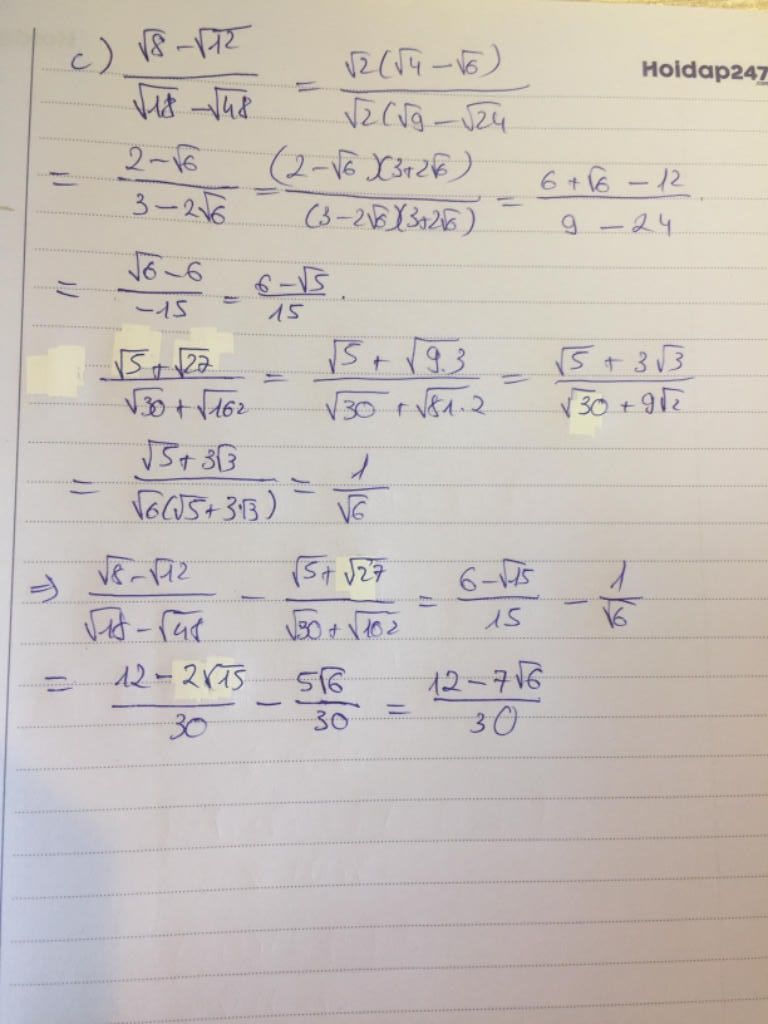 Hoidap247.com
c) (√8 − √12)/(√18 − √48) = √2(√4 − √6)/√2(√9 − √24
= (2 − √6)/(3 − 2√6) = (2 − √6)(3 + 2√6)/(3 − 2√6)(3 + 2√6) = (6 + √6 − 12)/(9 − 24).
= (√6 − 6)/(−15) = (6 − √5)/15.
(√5 + √27)/(√30 + √162) = (√5 + √9.3)/(√30 + √81.2) = (√5 + 3√3)/(√30 + 9√2)
= (√5 + 3√3)/(√6(√5 + 3√3)) = 1/√6
⇒ (√8 − √12)/(√18 − √48) − (√5 + √27)/(√30 + √162) = (6 − √15)/15 − 1/√6
= (12 − 2√15)/30 − 5√6/30 = (12 − 7√6)/30